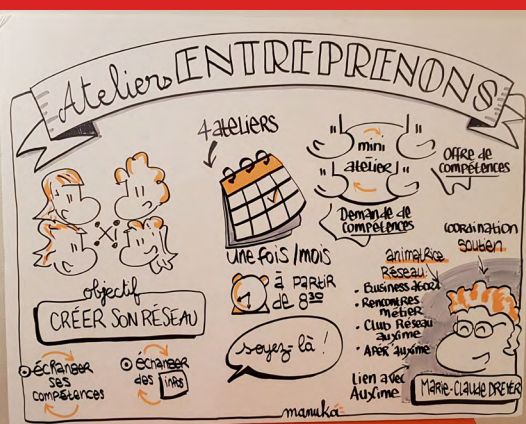 Ateliers ENTREPRENONS
4 ateliers
mini
atelier
Offre de
compétences
Demande de
compétences
objectif
CRÉER SON RÉSEAU
échanger
ses
compétences
échanger
des infos
une fois /mois
à partir
de 8 30
soyez-là !
coordination
soutien
animatrice
Réseau:
• Business
• Rencontres
métier
• Club Réseau
auxime
• Apér'auxime
Lien avec
Auxime
MARIE-CLAUDE DREYER
manuka